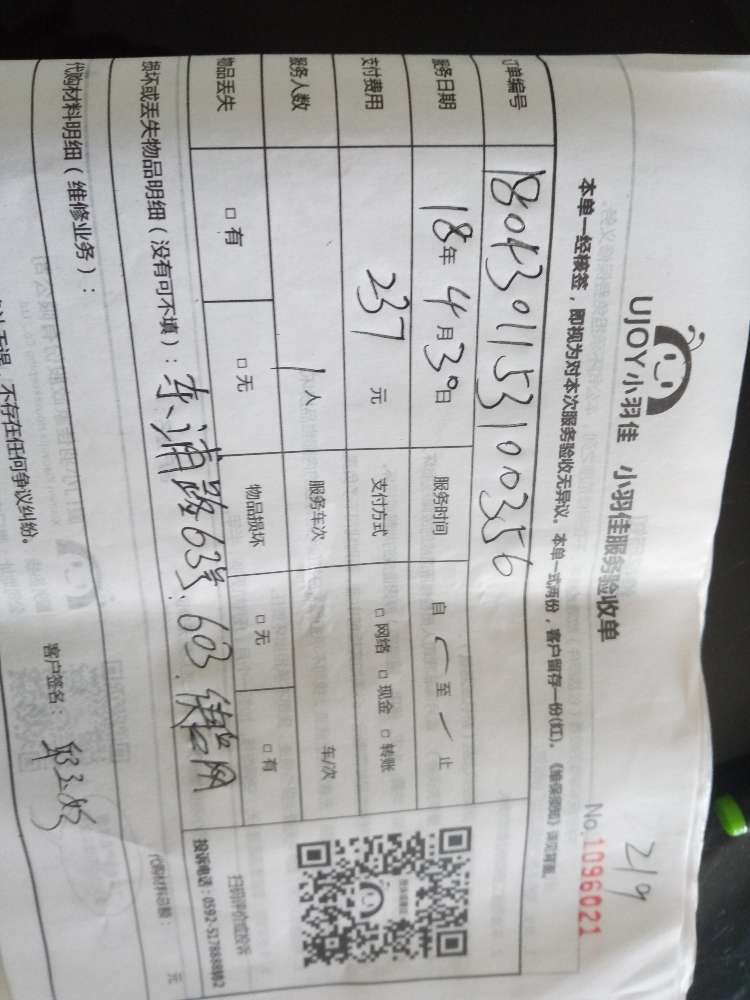 219
UJOY小羽佳 小羽佳服务验收单
No.1096021
本单一经核签，即视为对本次服务验收无异议。本单一式两份，客户留存一份(红)。《维保须知》详见背面。
订单编号 1804301153100356
服务日期 18年 4月30日 服务时间 自 至 止
支付费用 237 元 支付方式 □ 网络 □ 现金 □ 转账
服务人数 1人 服务车次 车/次
物品丢失 □ 有 □ 无 物品损坏 □ 无 □ 有
扫码评价或投诉
投诉电话：0592-5178888转2
损坏或丢失物品明细（没有可不填）：东浦路63号603
代购材料总额： 元
代购材料明细（维修业务）：
客户签名：
不存在任何争议纠纷。